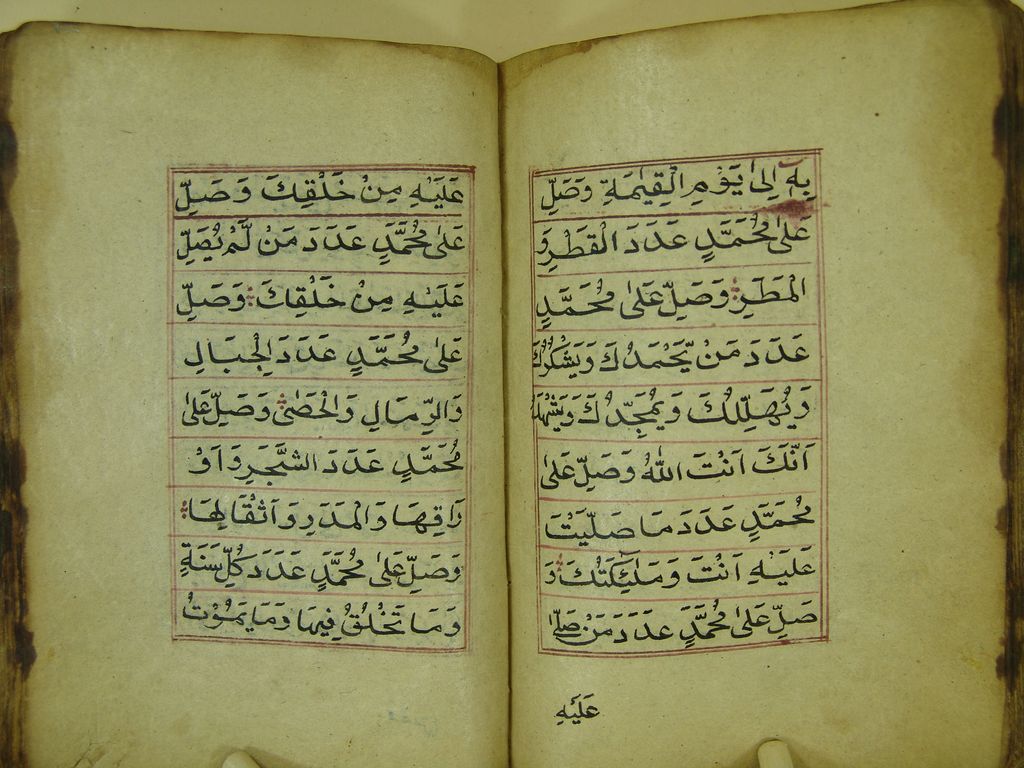 بِهٖ اِلٰى يَوْمِ الْقِيٰمَةِ وَصَلِّ
عَلٰى مُحَمَّدٍ عَدَدَ الْقَطْرِ وَ
الْمَطَرِ وَصَلِّ عَلٰى مُحَمَّدٍ
عَدَدَ مَنْ يَّحْمَدُكَ وَيَشْكُرُكَ
وَيُهَلِّلُكَ وَيُمَجِّدُكَ وَيَشْهَدُ
اَنَّكَ اَنْتَ اللّٰهُ وَصَلِّ عَلٰى
مُحَمَّدٍ عَدَدَ مَا صَلَّيْتَ
عَلَيْهِ اَنْتَ وَمَلٰٓئِكَتُكَ وَ
صَلِّ عَلٰى مُحَمَّدٍ عَدَدَ مَنْ صَلّٰى
عَلَيْهِ
عَلَيْهِ مِنْ خَلْقِكَ وَصَلِّ
عَلٰى مُحَمَّدٍ عَدَدَ مَنْ لَّمْ يُصَلِّ
عَلَيْهِ مِنْ خَلْقِكَ وَصَلِّ
عَلٰى مُحَمَّدٍ عَدَدَ الْجِبَالِ
وَالرِّمَالِ وَالْحَصٰى وَصَلِّ عَلٰى
مُحَمَّدٍ عَدَدَ الشَّجَرِ وَاَوْ
رَاقِهَا وَالْمَدَرِ وَاَثْقَالِهَا
وَصَلِّ عَلٰى مُحَمَّدٍ عَدَدَ كُلِّ سَنَةٍ
وَمَا تَخْلُقُ فِيهَا وَمَا يَمُوْتُ